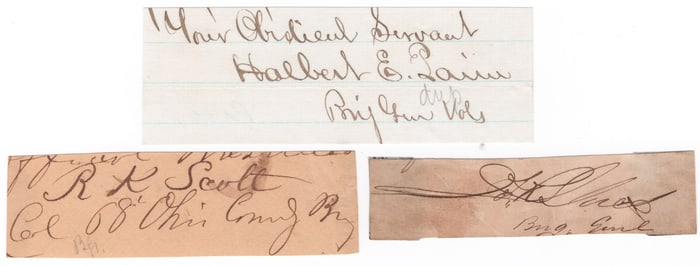 Your Obidient Servant
Halbert E. Paine
Brig Gen Vols
dup
R K Scott
Col 68' Ohio Comdg Brig
Brig. Genl